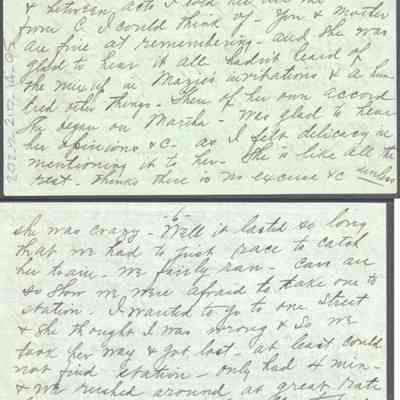 & between acts I told her all the
from C. I could think of - You & Mother
are fine at remembering - and she was
glad to hear it all hadn't heard of
the mix up in Mazie's invitations & a hun-
dred other things - Then of her own accord
she began on Martha - was glad to hear
her opinions &c - as I felt delicacy in
mentioning it to her - She is like all the
rest - thinks there is no excuse &c unless
2024.210.16.05
-6-
she was crazy - Well it lasted so long
that we had to just race to catch
her team - We fairly ran - Cars are
so slow we were afraid to take one to
station - I wanted to go to one Street
& She thought I was wrong & so we
took her way & got lost - at least could
not find station - only had 4 min-
& we rushed around at great rate